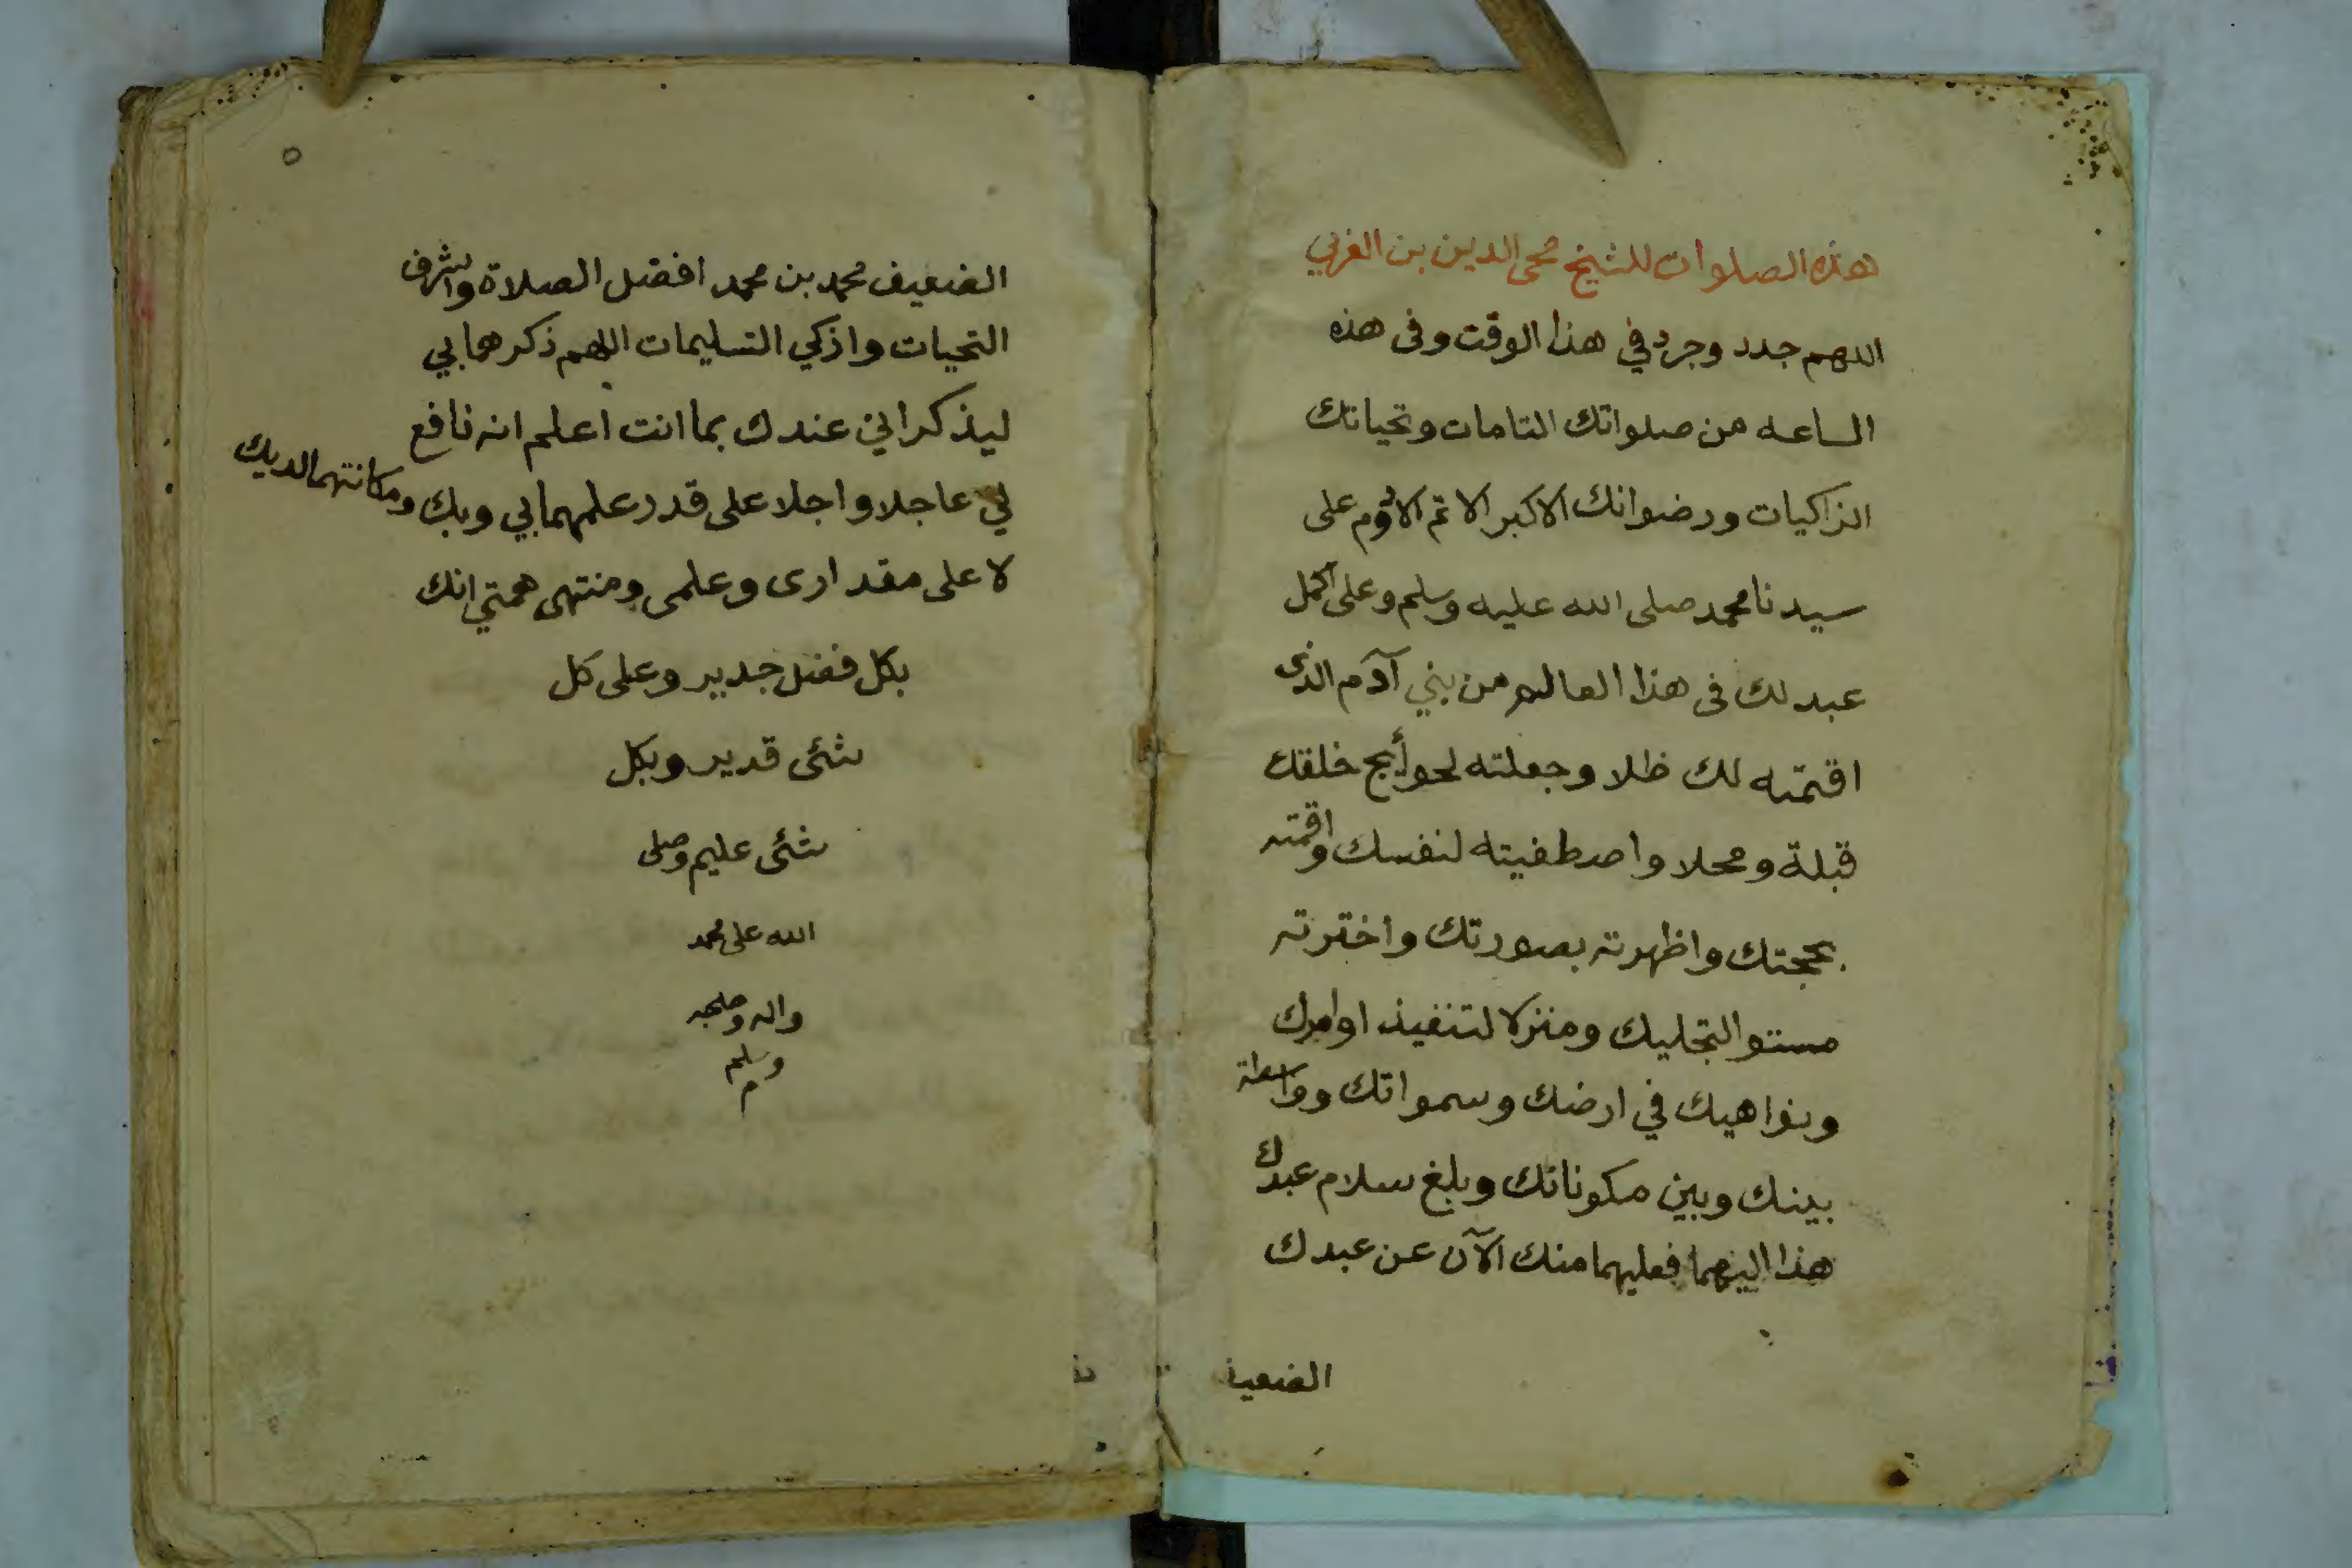 هذه الصلوات للشيخ محى الدين بن العربي
اللهم جدد وجرد في هذا الوقت وفى هذه
الساعه من صلواتك التامات وتحياتك
الزاكيات ورضوانك الاكبر الاتم الادوم على
سيدنا محمد صلى الله عليه وسلم وعلى اكمل
عبد لك فى هذا العالم من بني آدم الذى
اقمته لك ظلا وجعلته لحوأيج خلقك
قبلة ومحلا واصطفيته لنفسك واقمته
بحجتك واظهرته بصورتك واخترته
مستوا لتجليك ومنزلا لتنفيذ اوامرك
ونواهيك في ارضك وسمواتك وواسطة
بينك وبين مكوناتك وبلغ سلام عبدك
هذا اليهما فعليهما منك الآن عن عبدك
الضعيف
٥
الضعيف محمد بن محمد افضل الصلاة واشرف
التحيات وازكي التسليمات اللهم ذكرهما بي
ليذكراني عندك بما انت اعلم انه نافع
لي عاجلا واجلا على قدر علمهما بي وبك ومكانتهما لديك
لا على مقدارى وعلمى ومنتهى همتي انك
بكل فضل جدير وعلى كل
شئى قدير وبكل
شئى عليم وصلى
الله على محمد
واله وصحبه
وسلم
م